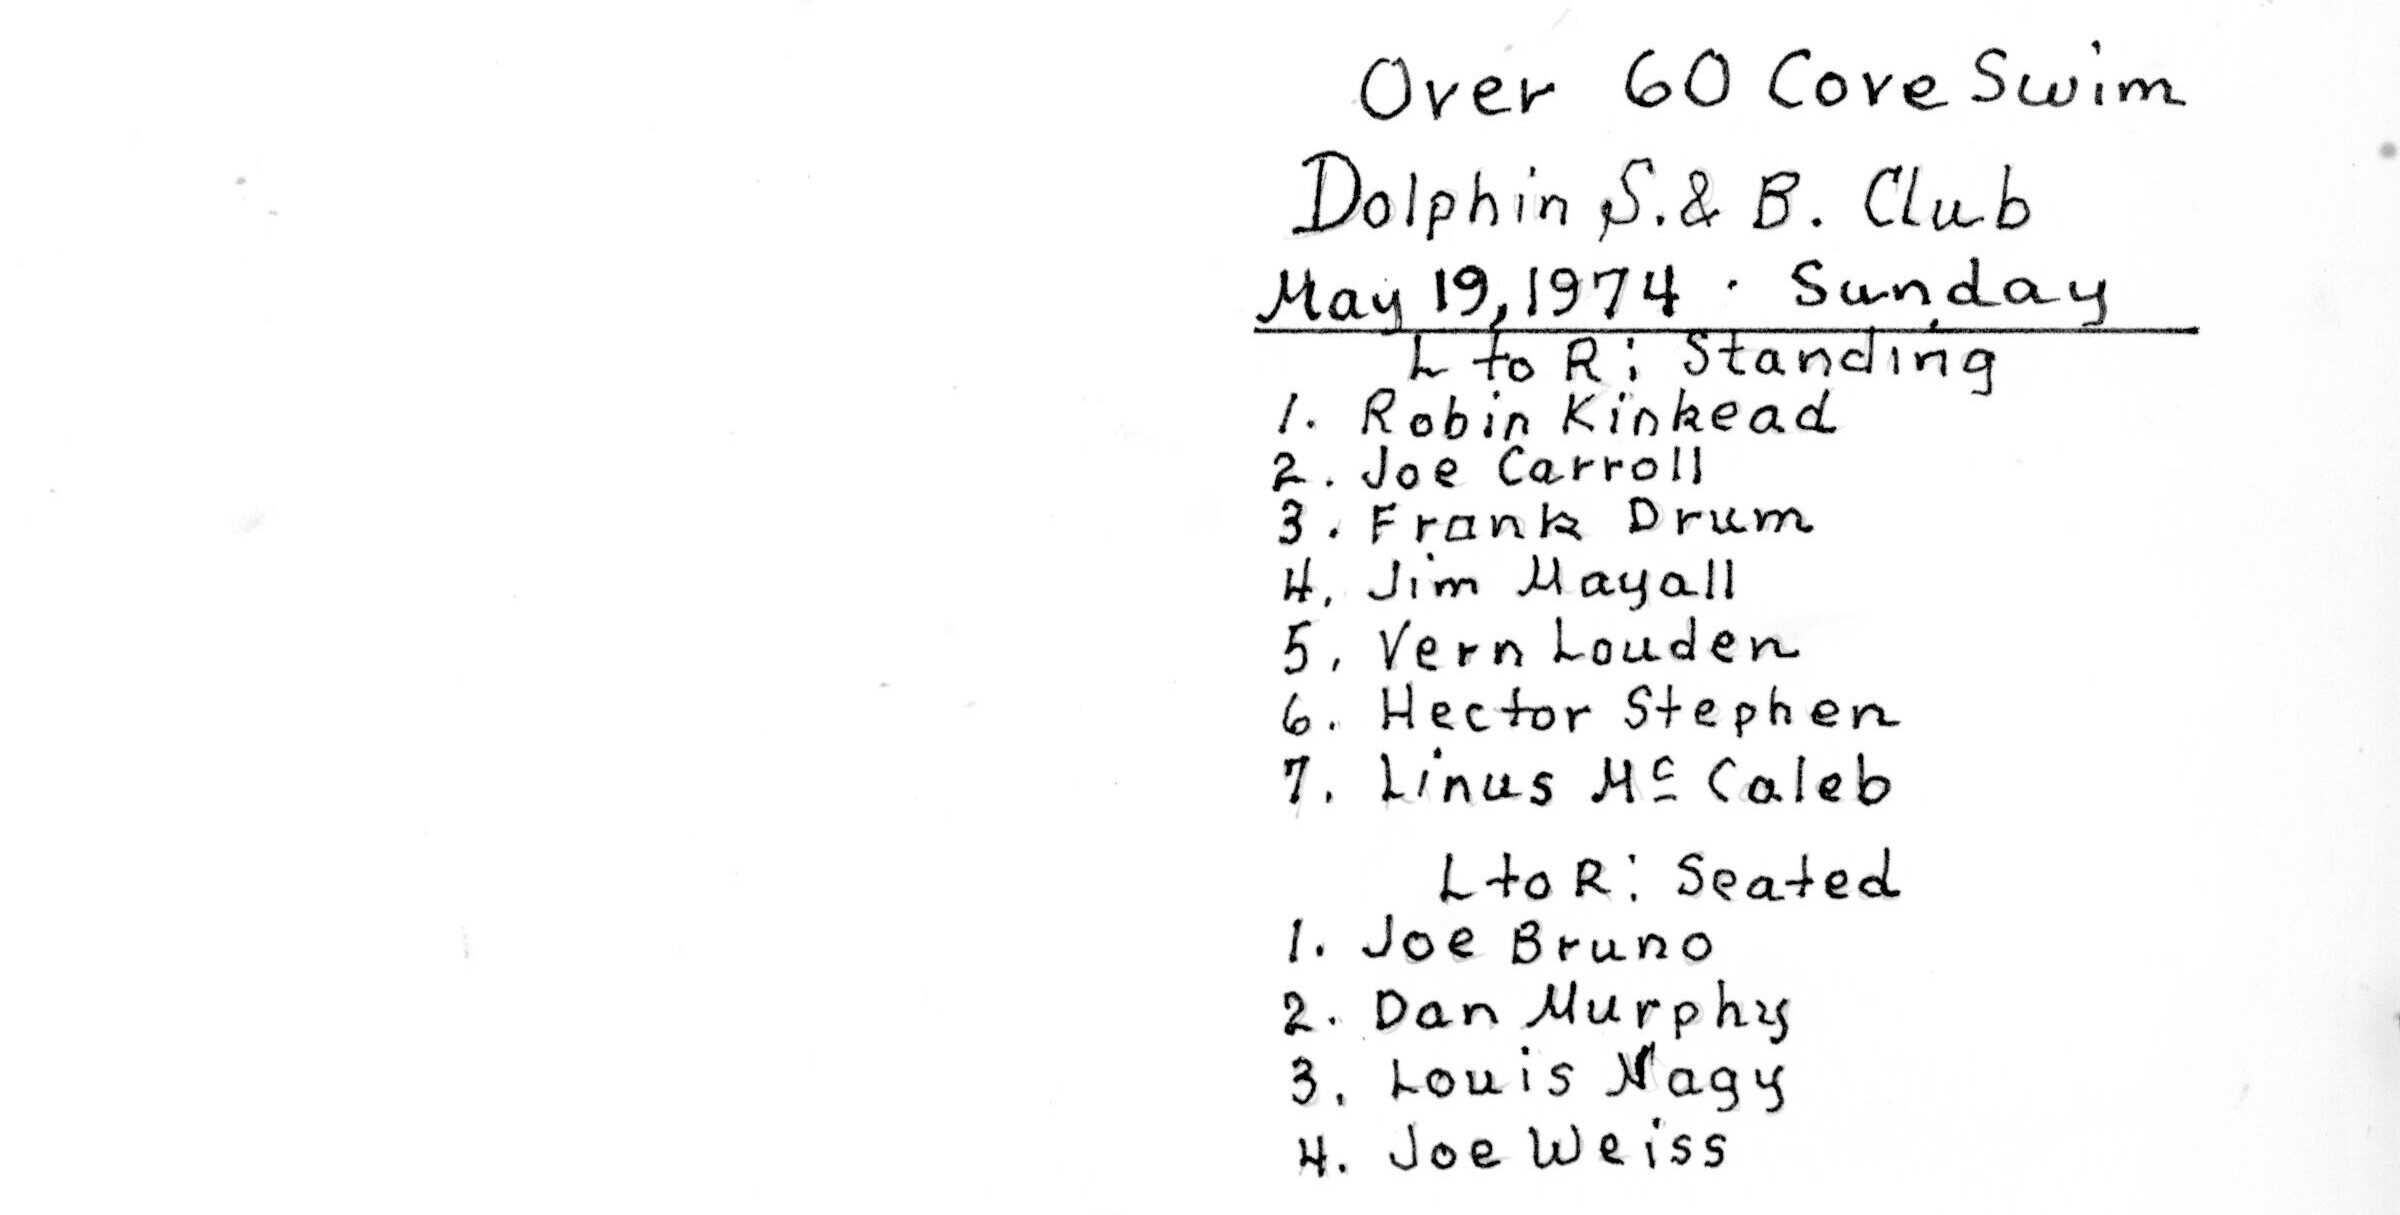 Over 60 Cove Swim
Dolphin S. & B. Club
May 19, 1974 · Sunday
L to R: Standing
1. Robin Kinkead
2. Joe Carroll
3. Frank Drum
4. Jim Mayall
5. Vern Louden
6. Hector Stephen
7. Linus Mc Caleb
L to R: Seated
1. Joe Bruno
2. Dan Murphy
3. Louis Nagy
4. Joe Weiss